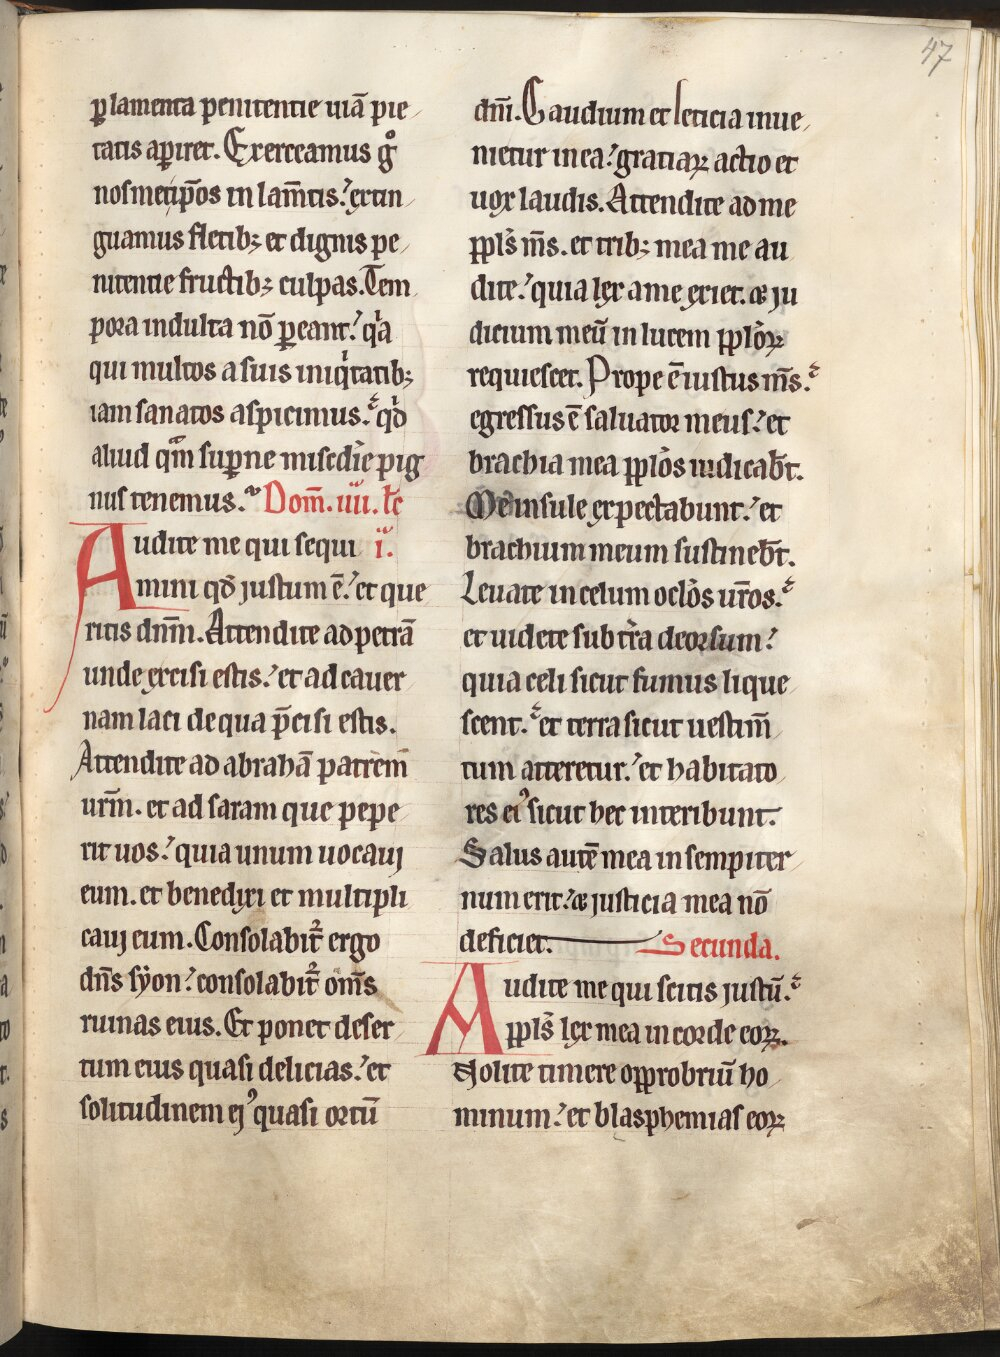 47
ꝑ lamenta penitentie uiā pie
tatis aꝑiret. Exerceamus gͦ
nosmetip̄os in lam̄tis. extin
guamus fletibꝫ et dignis pe
nitentie fructibꝫ culpas. Tem
pora indulta nō ꝑeant. qͥa
qui multos a suis iniqͥtatibꝫ
iam sanatos aspicimus. qͥd
aliud qᷓm suꝑne mis̄cdie pig
nus tenemus. Dom̄. iiii. lc̄
Audite me qui sequi i.
mini qđ justum ē. et que
ritis dnm̄. Attendite ad petrā
unde excisi estis. et ad cauer
nam laci de qua p̄cisi estis.
Attendite ad abrahā patrem
urm̄. et ad saram que pepe
rit uos. quia unum uocauj
eum. et benedixi et multipli
cauj eum. Consolabit᷑ ergo
dn̄s sẏon. consolabit᷑ om̄s
ruinas eius. Et ponet deser
tum eius quasi delicias. et
solitudinem ejꝰ quasi ortū
dn̄i. Gaudium et leticia inue
nietur in ea. gratiaꝝ actio et
uox laudis. Attendite ad me
ppl̄s m̄s. et tribꝫ mea me au
dite. quia lex a me exiet. ⁊ ju
dicium meū in lucem pplōꝝ
requiescet. Prope ē iustus m̄s.
egressus ē saluator meus. et
brachia mea pplōs iudicab̄t.
Me insule expectabunt. et
brachium meum sustineb̄t.
Leuate in celum oclōs ur̄os.
et uidete sub tr̄a deorsum.
quia celi sicut fumus lique
scent. et terra sicut uestim̄
tum atteretur. et habitato
res eiꝰ sicut hec interibunt.
Salus autē mea in sempiter
num erit. ⁊ justicia mea nō
deficiet. Secunda.
Audite me qui scitis justū.
ppl̄s lex mea in corde eoꝝ.
Nolite timere opprobriū ho
minum. et blasphemias eoꝝ